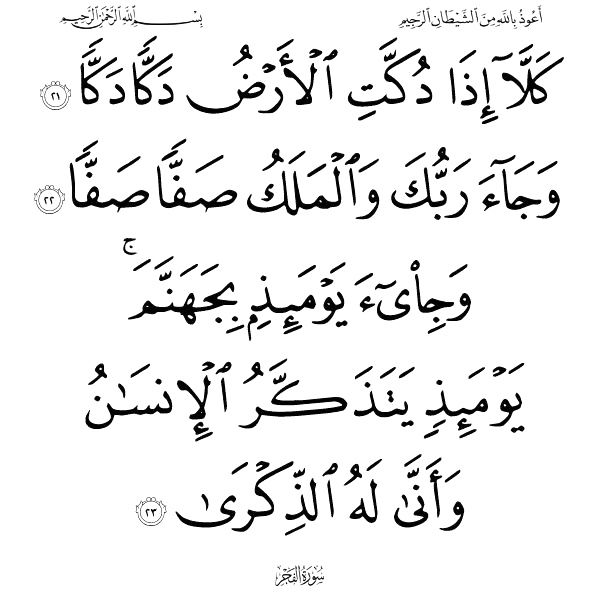 أَعُوذُ بِاللَّهِ مِنَ الشَّيْطَانِ الرَّجِيمِ
بِسْمِ اللَّهِ الرَّحْمَٰنِ الرَّحِيمِ
كَلَّآ إِذَا دُكَّتِ ٱلْأَرْضُ دَكًّا دَكًّا ٢١
وَجَآءَ رَبُّكَ وَٱلْمَلَكُ صَفًّا صَفًّا ٢٢
وَجِا۟ىٓءَ يَوْمَئِذٍۭ بِجَهَنَّمَ ۚ
يَوْمَئِذٍ يَتَذَكَّرُ ٱلْإِنسَـٰنُ
وَأَنَّىٰ لَهُ ٱلذِّكْرَىٰ ٢٣
سُورَةُ الْفَجْرِ